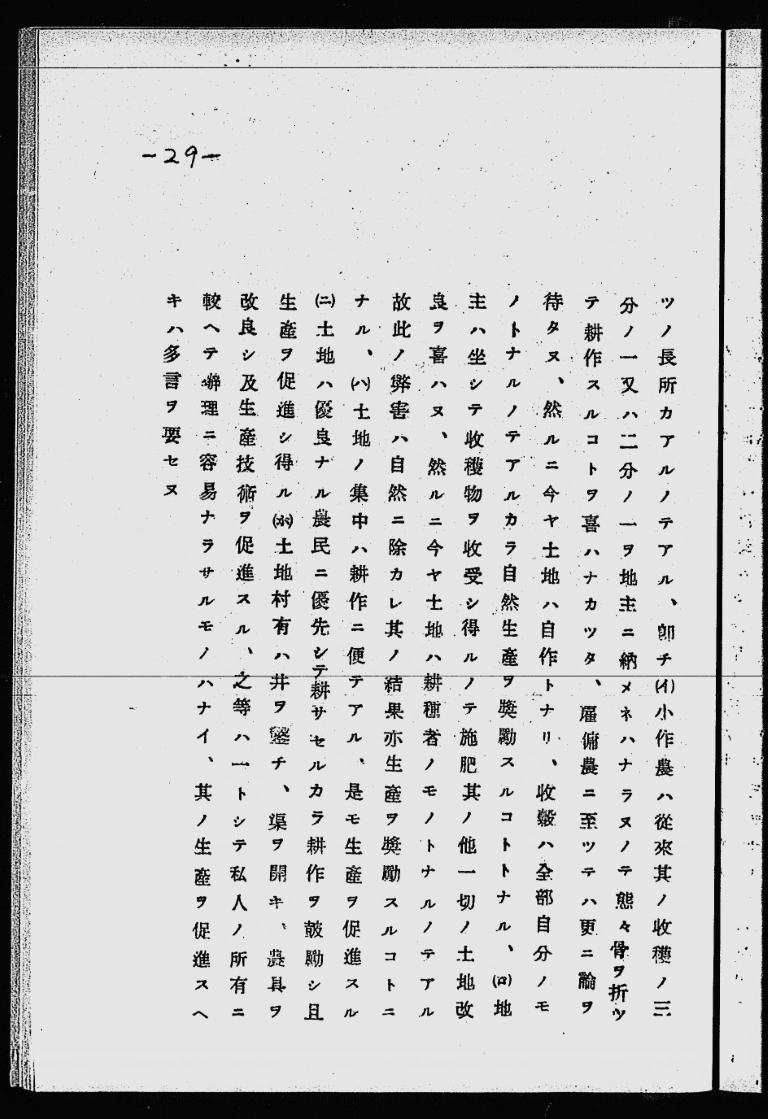 -29-
ツノ長所カアルノテアル、卽チ(イ)小作農ハ從來其ノ收穫ノ三
分ノ一又ハ二分ノ一ヲ地主ニ納メネハナラヌノテ態々骨ヲ折ツ
テ耕作スルコトヲ喜ハナカツタ、雇傭農ニ至ツテハ更ニ論ヲ
待タヌ、然ルニ今ヤ土地ハ自作トナリ、收穀ハ全部自分ノモ
ノトナルノテアルカラ自然生產ヲ奬勵スルコトトナル、(ロ)地
主ハ坐シテ收穫物ヲ收受シ得ルノテ施肥其ノ他一切ノ土地改
良ヲ喜ハヌ、然ルニ今ヤ土地ハ耕種者ノモノトナルノテアル
故此ノ弊害ハ自然ニ除カレ其ノ結果亦生產ヲ奬勵スルコトニ
ナル、(ハ)土地ノ集中ハ耕作ニ便テアル、是モ生產ヲ促進スル
(ニ)土地ハ優良ナル農民ニ優先シテ耕サセルカラ耕作ヲ鼓勵シ且
生產ヲ促進シ得ル(ホ)土地村有ハ井ヲ鑿チ、渠ヲ開キ、農具ヲ
改良シ及生產技術ヲ促進スル、之等ハ一トシテ私人ノ所有ニ
較ヘテ辦理ニ容易ナラサルモノハナイ、其ノ生產ヲ促進スヘ
キハ多言ヲ要セヌ